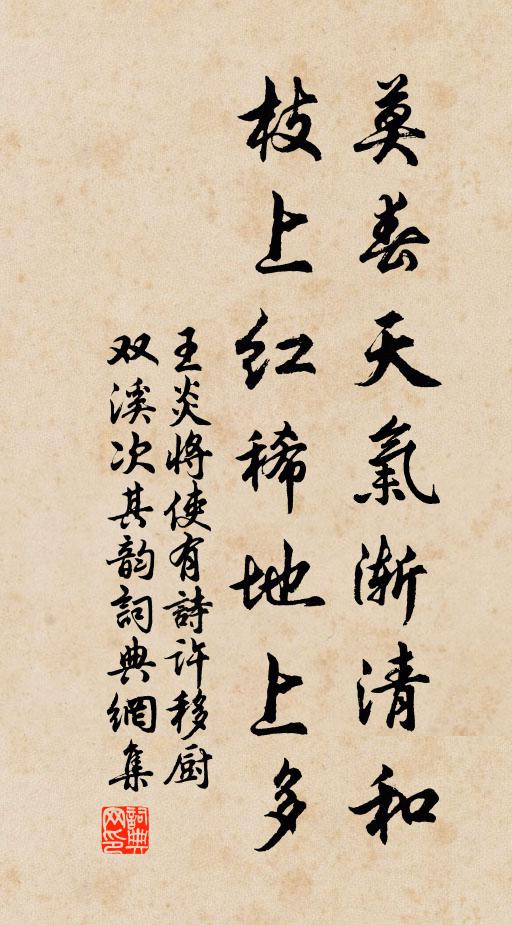 莫春天氣渐清和
枝上红稀地上多
王炎将使有詩许移厨
双溪次其韵詞典網集
詞典网印